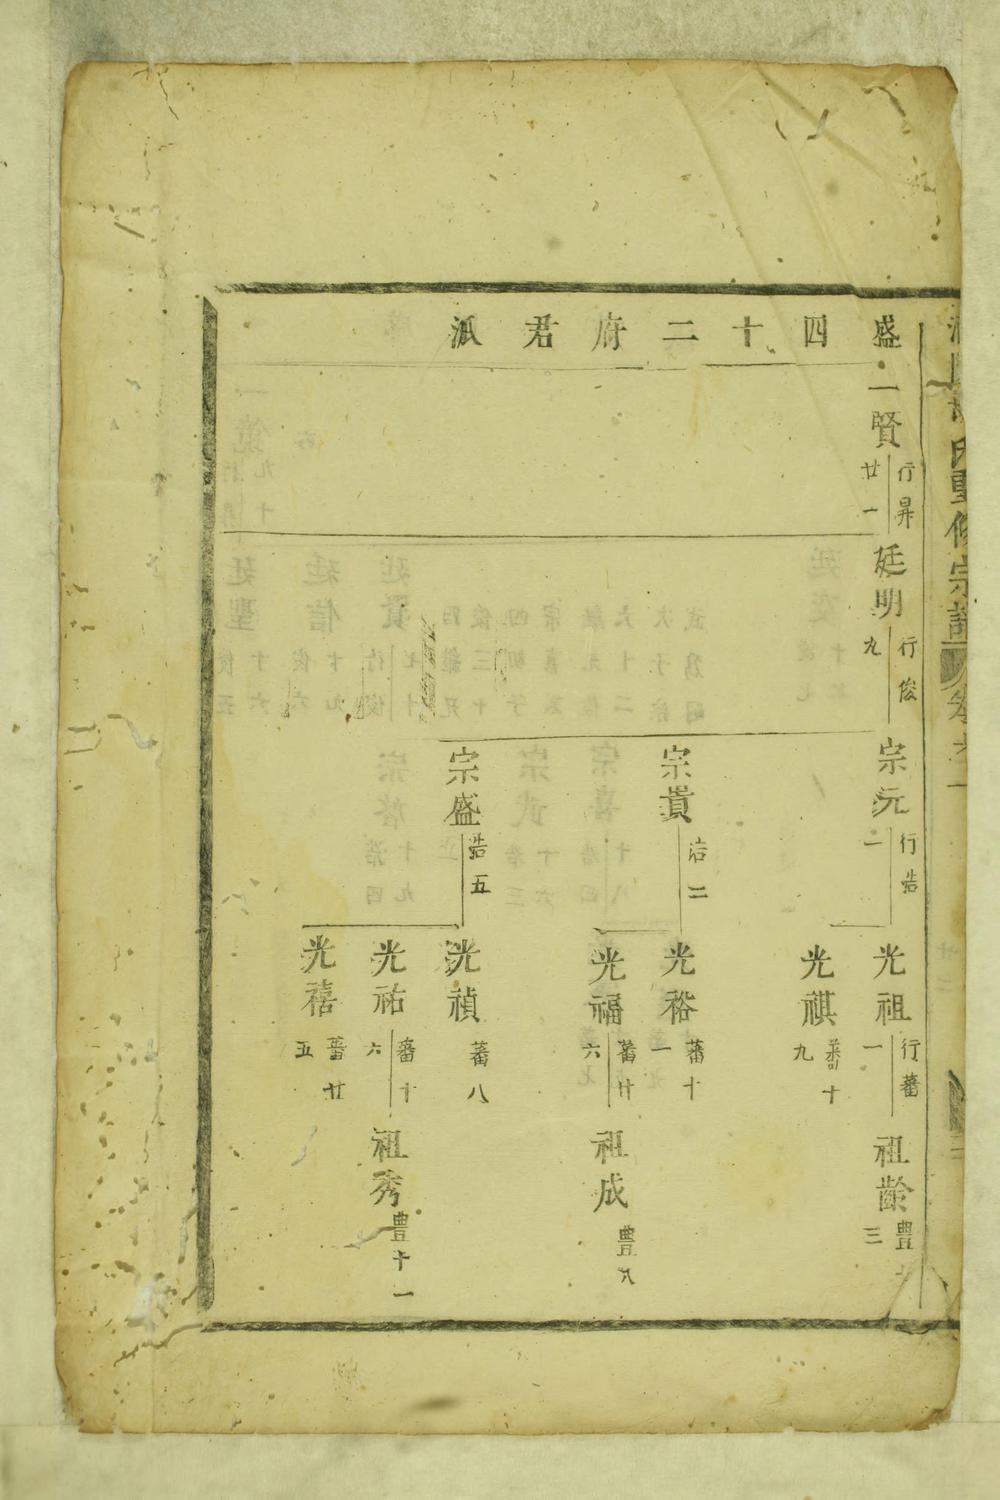 氏重修宗譜
盛四十二府君派
一賢 行昇廿一
廷明 行俊九
宗元 行浩一
宗貴 浩二
宗盛 浩五
光祖 行蕃一
光祺 蕃十九
光裕 蕃十一
光福 蕃廿六
光禎 蕃八
光祐 蕃十六
光禧 蕃廿五
祖齡 豊 三
祖成 豊八
祖秀 豊十一